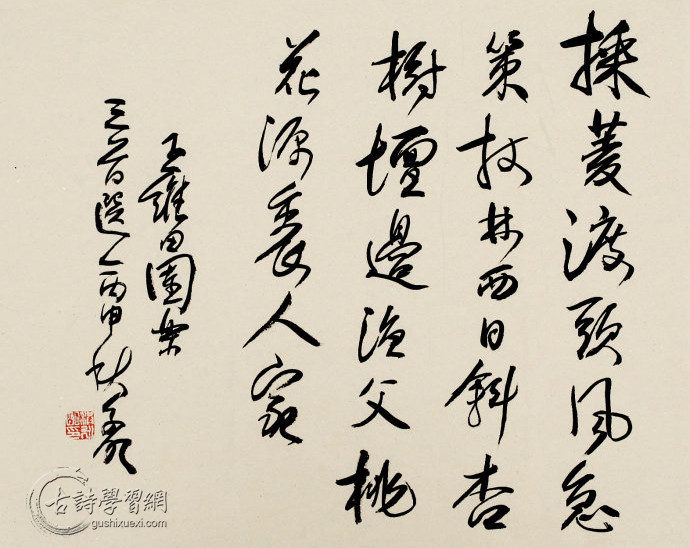 採菱渡頭風急
策杖林西日斜杏
樹壇邊漁父桃
花源裏人家
王維田園樂
三百選一丙申秋
古詩學習網
gushixuexi.com